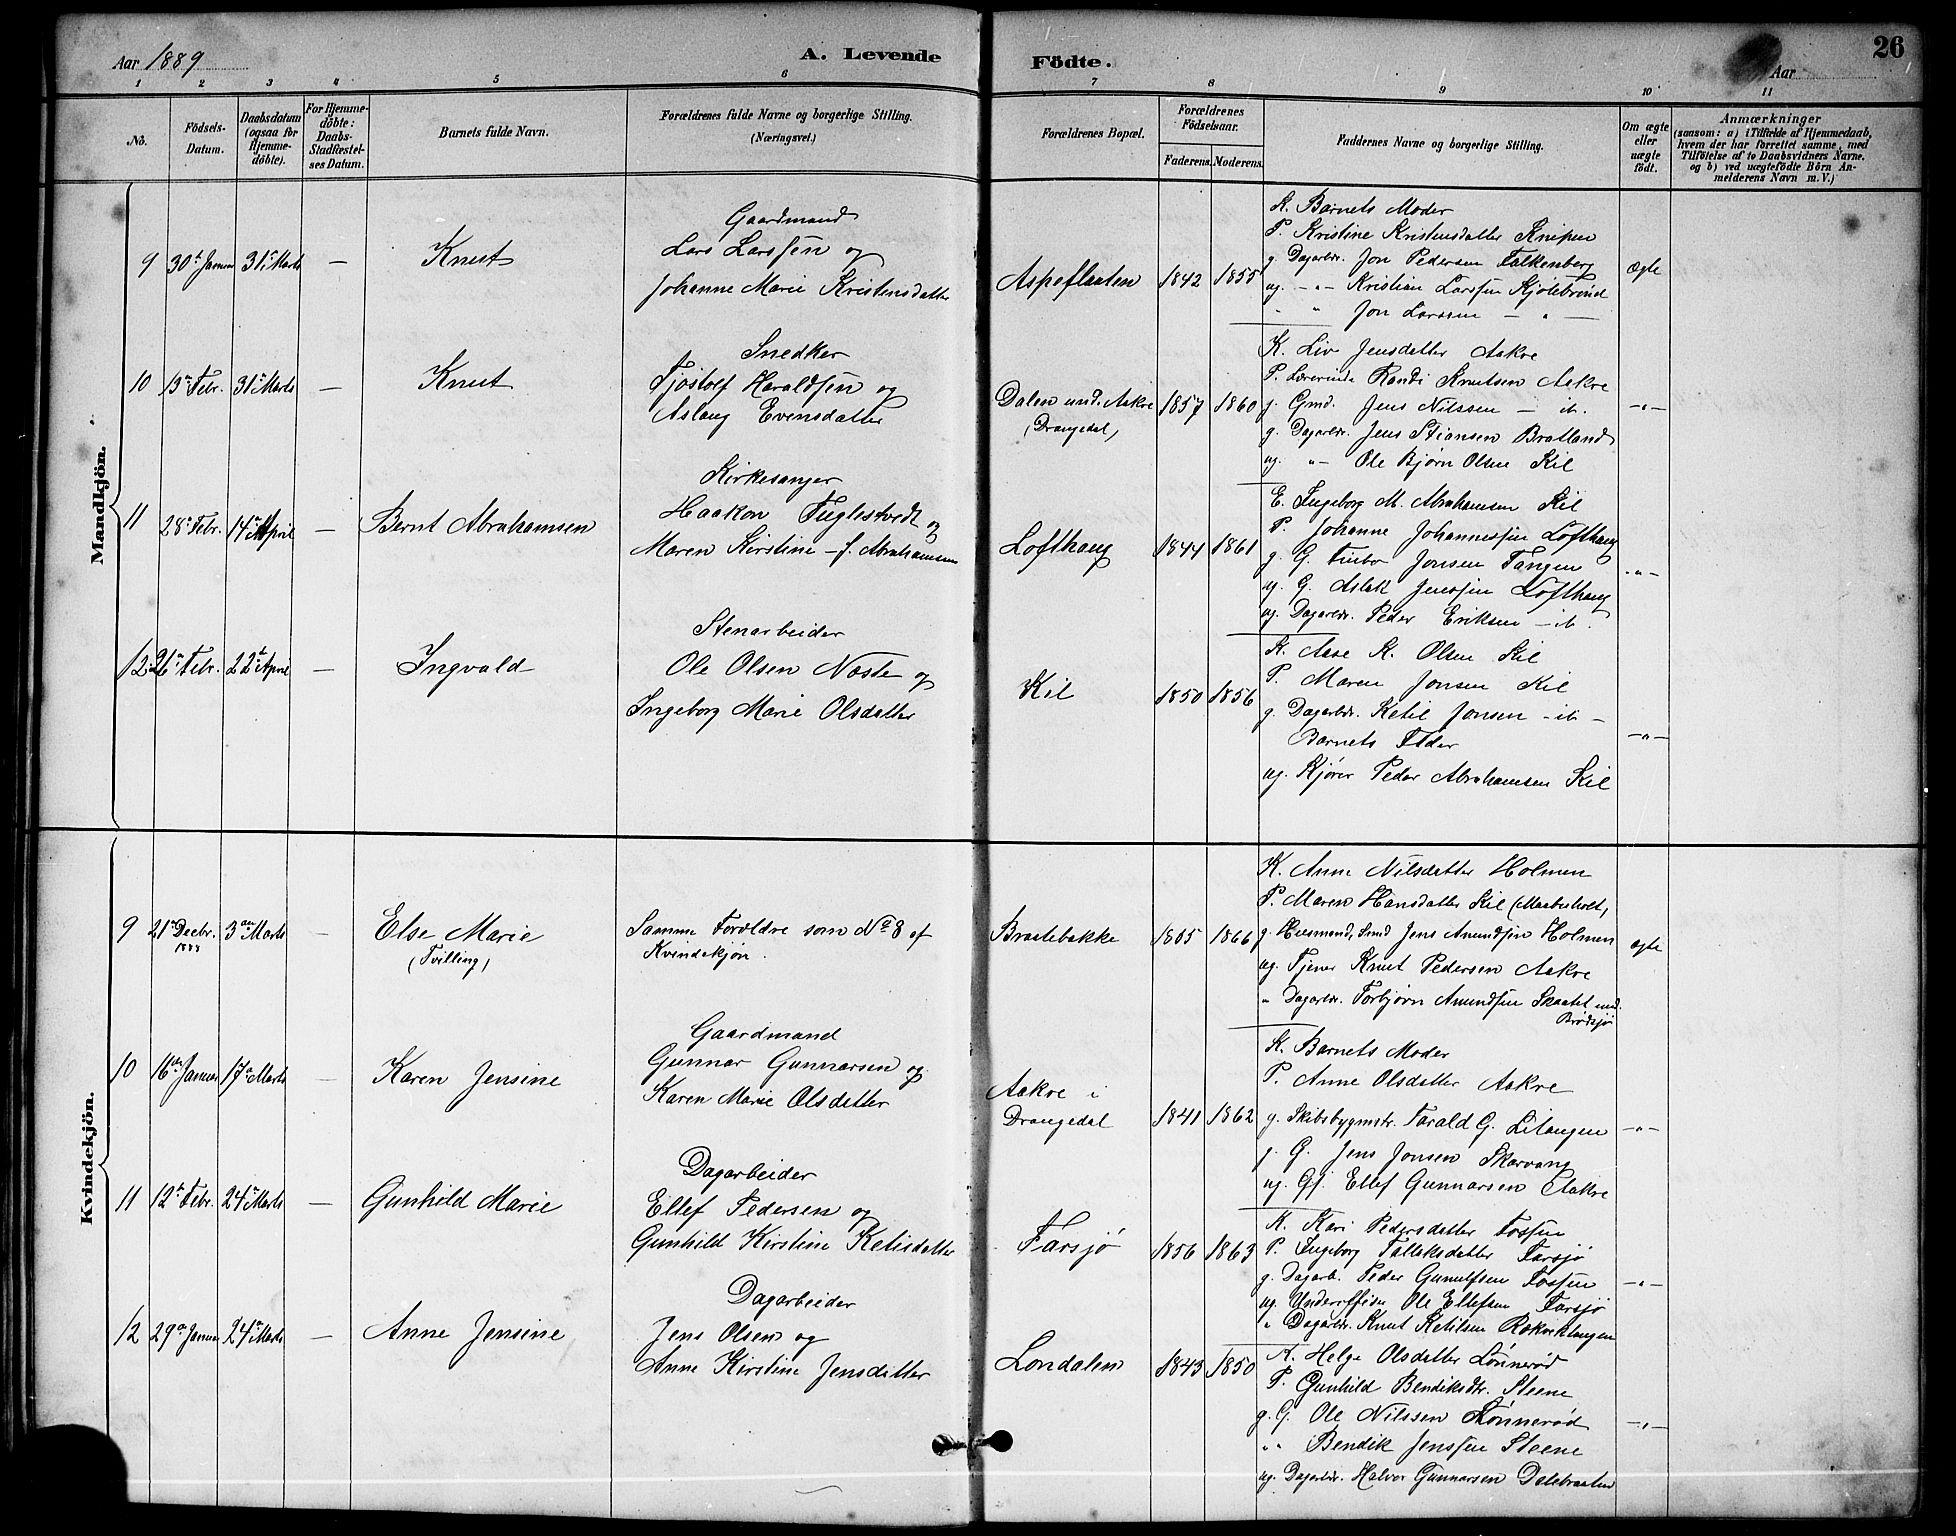 Aar 1889
A. Levende Födte.
26
Aar
1 2 3 4 5 6 7 8 9 10 11
No.
Födsels-Datum.
Daabsdatum (ogsaa for Hjemme-döbte).
For Hjemme-döbte: Daabs-Stadfæstel-ses Datum.
Barnets fulde Navn.
Forældrenes fulde Navne og borgerlige Stilling. (Næringsvei.)
Forældrenes Bopæl.
Forældrenes Födselsaar.
Faderens. Moderens.
Faddernes Navne og borgerlige Stilling.
Om ægte eller uægte födt.
Anmærkninger
(saasom: a) i Tilfælde af Hjemmedaab,
hvem der har forrettet samme, med
Tilföielse af to Daabsvidners Navne.
og b) ved uægtefödte Börn An-
melderens Navn m. V.)
Mandkjön.
9 30te Januar 31te Marts — Knut
Gaardmand
Lars Larssen og
Johanne Marie Kristensdatter
Aspeflaaten 1842 1855
K. Barnets Moder
P. Kristine Kristensdatter Knipen
g. Dagarbdr. Jon Pedersen Falkenberg
ug. — " — Kristian Larssen Kjølebrønd
" " Jon Larssen — " —
Ægte
10 13de Febr. 31te Marts — Knut
Snedker
Tjøstolf Haraldsen og
Aslaug Evensdatter
Dalen und. Aakre
(Drangedal)
1857 1860
K. Liv Jensdatter Aakre
P. Lærerinde Randi Knutsen Aakre
g. Gmd. Jens Nilssen — ib.
g. Dagarbdr. Jens Stiansen Bratland
ug. " — Ole Bjørn Olsen Kil
— " —
11 28de Febr. 14de April — Bernt Abrahamsen
Kirkesanger
Haakon Fuglestvedt og
Maren Kirstine — f. Abrahamsen
Lofthaug 1844 1861
E. Ingeborg M. Abrahamsen Kil
P. Johanne Johannessen Lofthaug
g. G. Timbo Jonsen Tangen
ug. G. Aslak Jenssen Lofthaug
ug. Dagarbdr. Peder Eriksen — ib.
— " —
12 26de Febr. 22de April — Ingvald
Stenarbeider
Ole Olsen Næste og
Ingeborg Marie Olsdatter
Kil 1850 1856
K. Aase K. Olsen Kil
P. Maren Jonsen Kil
g. Dagarbdr. Ketil Jonsen — ib —
Barnets Fader
ug. Kjører Peder Abrahamsen Kil
— " —
Kvindekjön.
9 21de Decbr. 1888 3die Marts — Else Marie
(Tvilling)
Samme Forældre som No 8 af
Kvindekjøn.
Braatebakke 1865 1866
K. Anne Nilsdatter Holmen
P. Maren Hansdatter Kil (Maabesholt)
g. Huusmand, Smed Jens Amundsen Holmen
ug. Tjener Knut Pedersen Aakre
" Dagarbdr. Torbjørn Amundsen Skaatet und.
Brødsjø
ægte
10 16de Januar 17de Marts — Karen Jensine
Gaardmand
Gunnar Gunnarsen og
Karen Marie Olsdatter
Aakre i
Drangedal
1841 1862
K. Barnets Moder
P. Anne Olsdatter Aakre
g. Skibsbygmstr. Tarald G. Litangen
g. G. Jens Jonsen Skarvang
ug. Gf. Ellef Gunnarsen Aakre
— " —
11 12te Febr. 24de Marts — Gunhild Marie
Dagarbeider
Ellef Pedersen og
Gunhild Kirstine Ketilsdatter
Farsjø 1856 1863
K. Kari Pedersdatter Fossen
P. Ingeborg Tallaksdatter Farsjø
g. Dagarb. Peder Gunulfsen Fossen
ug. Underoffiser Ole Ellefsen Farsjø
" Dagarbdr. Knut Ketilsen
— " —
12 29de Januar 24de Marts — Anne Jensine
Dagarbeider
Jens Olsen og
Anne Kirstine Jensdatter
Londalen 1843 1850
K. Helge Olsdatter Lønnerød
P. Gunhild Bendiksdtr. Steene
g. G. Ole Nilssen Lønnerød
" " Bendik Jenssen Steene
ug. Dagarbdr. Halvor Gunnarsen Dalebraaten
— " —